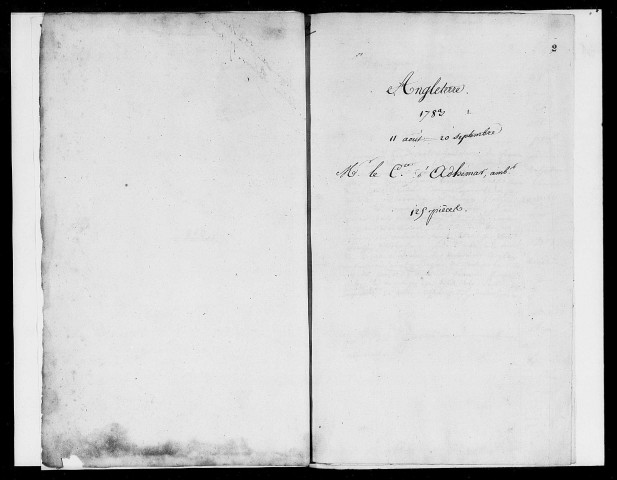 2
Angleterre.
1783
11 août 20 septembre
Mr le Cte d'Adhemar, ambr
125 pièces.